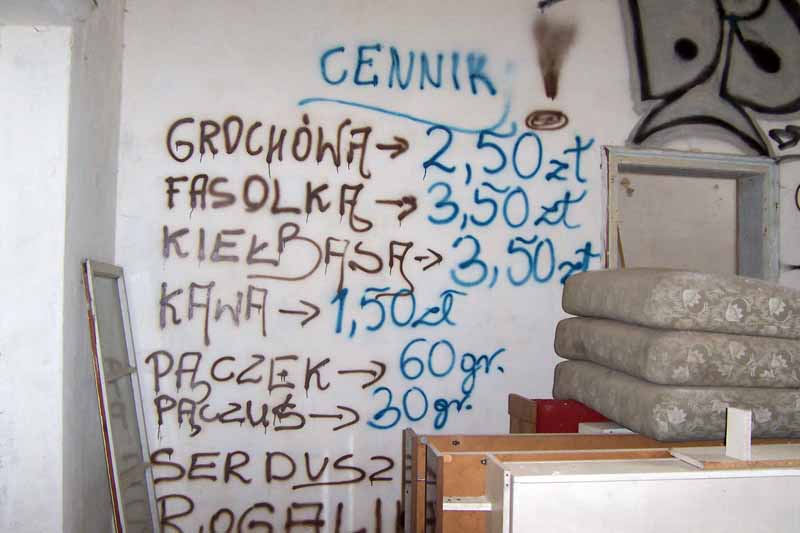 CENNIK
GROCHÓWA → 2,50 zł
FASOLKA → 3,50 zł
KIEŁBASA → 3,50 zł
KAWA → 1,50 zł
PĄCZEK → 60 gr.
PĄCZUŚ → 30 gr.
SERDUSZ
ROGALI